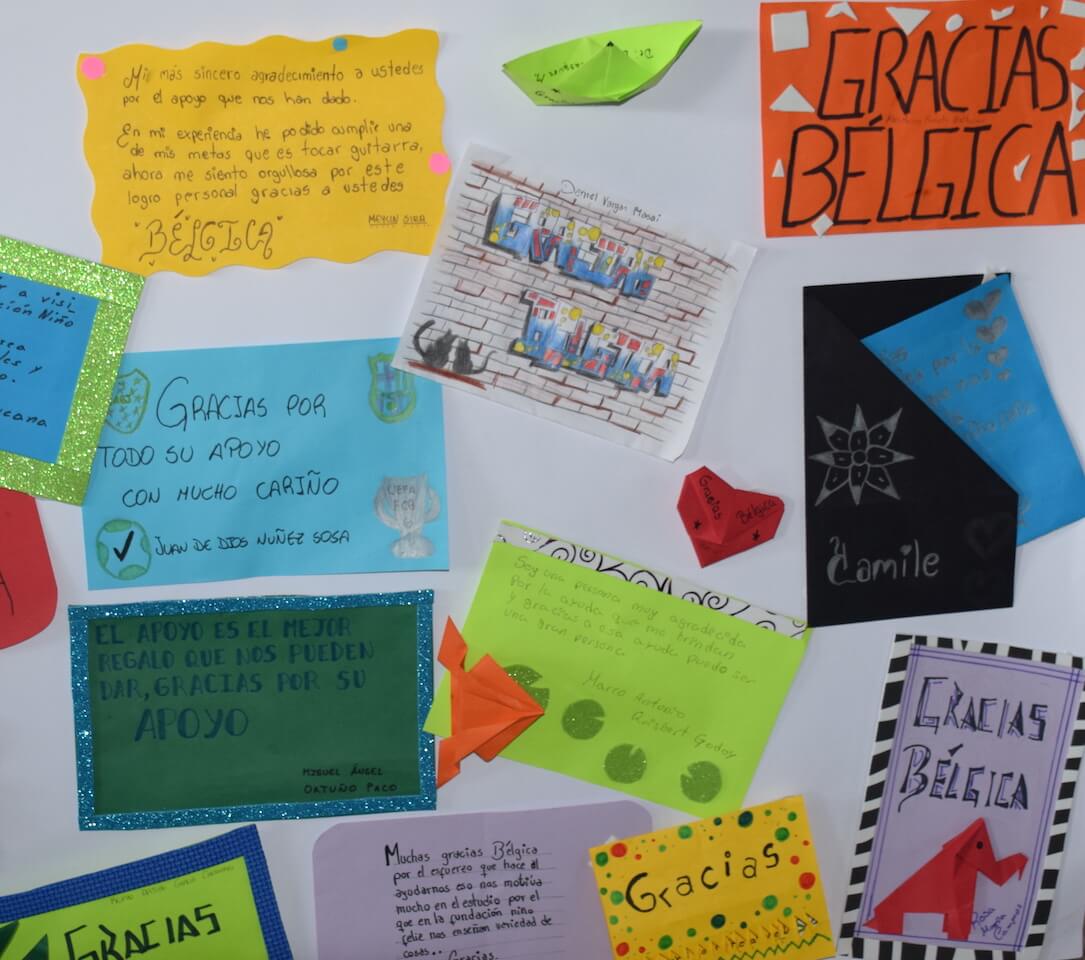 Mi más sincero agradecimiento a ustedes
por el apoyo que nos han dado.
En mi experiencia he podido cumplir una
de mis metas que es tocar guitarra,
ahora me siento orgullosa por este
logro personal gracias a ustedes
"BÉLGICA"
MEYLIN SIRA
GRACIAS
BÉLGICA
Daniel Vargas Masai
a visi
ción Niño
sea
les y
o.
icana
GRACIAS POR
TODO SU APOYO
CON MUCHO CARIÑO
JUAN DE DIOS NUÑEZ SOSA
UEFA
FCB
Gracias
Bélgica
por la
Camile
Soy una persona muy agradecida
por la ayuda que me brindan
y gracias a esa ayuda puedo ser
una gran persona
Marco Antonio
Quisbert Godoy
EL APOYO ES EL MEJOR
REGALO QUE NOS PUEDEN
DAR, GRACIAS POR SU
APOYO
MIGUEL ÁNGEL
ORTUÑO PACO
GRACIAS
BÉLGICA
Muchas gracias Bélgica
por el esfuerzo que hace al
ayudarnos eso nos motiva
mucho en el estudio por el
que en la fundación niño
feliz nos enseñan variedad de
cosas..
Gracias.
Gracias
GRACIAS